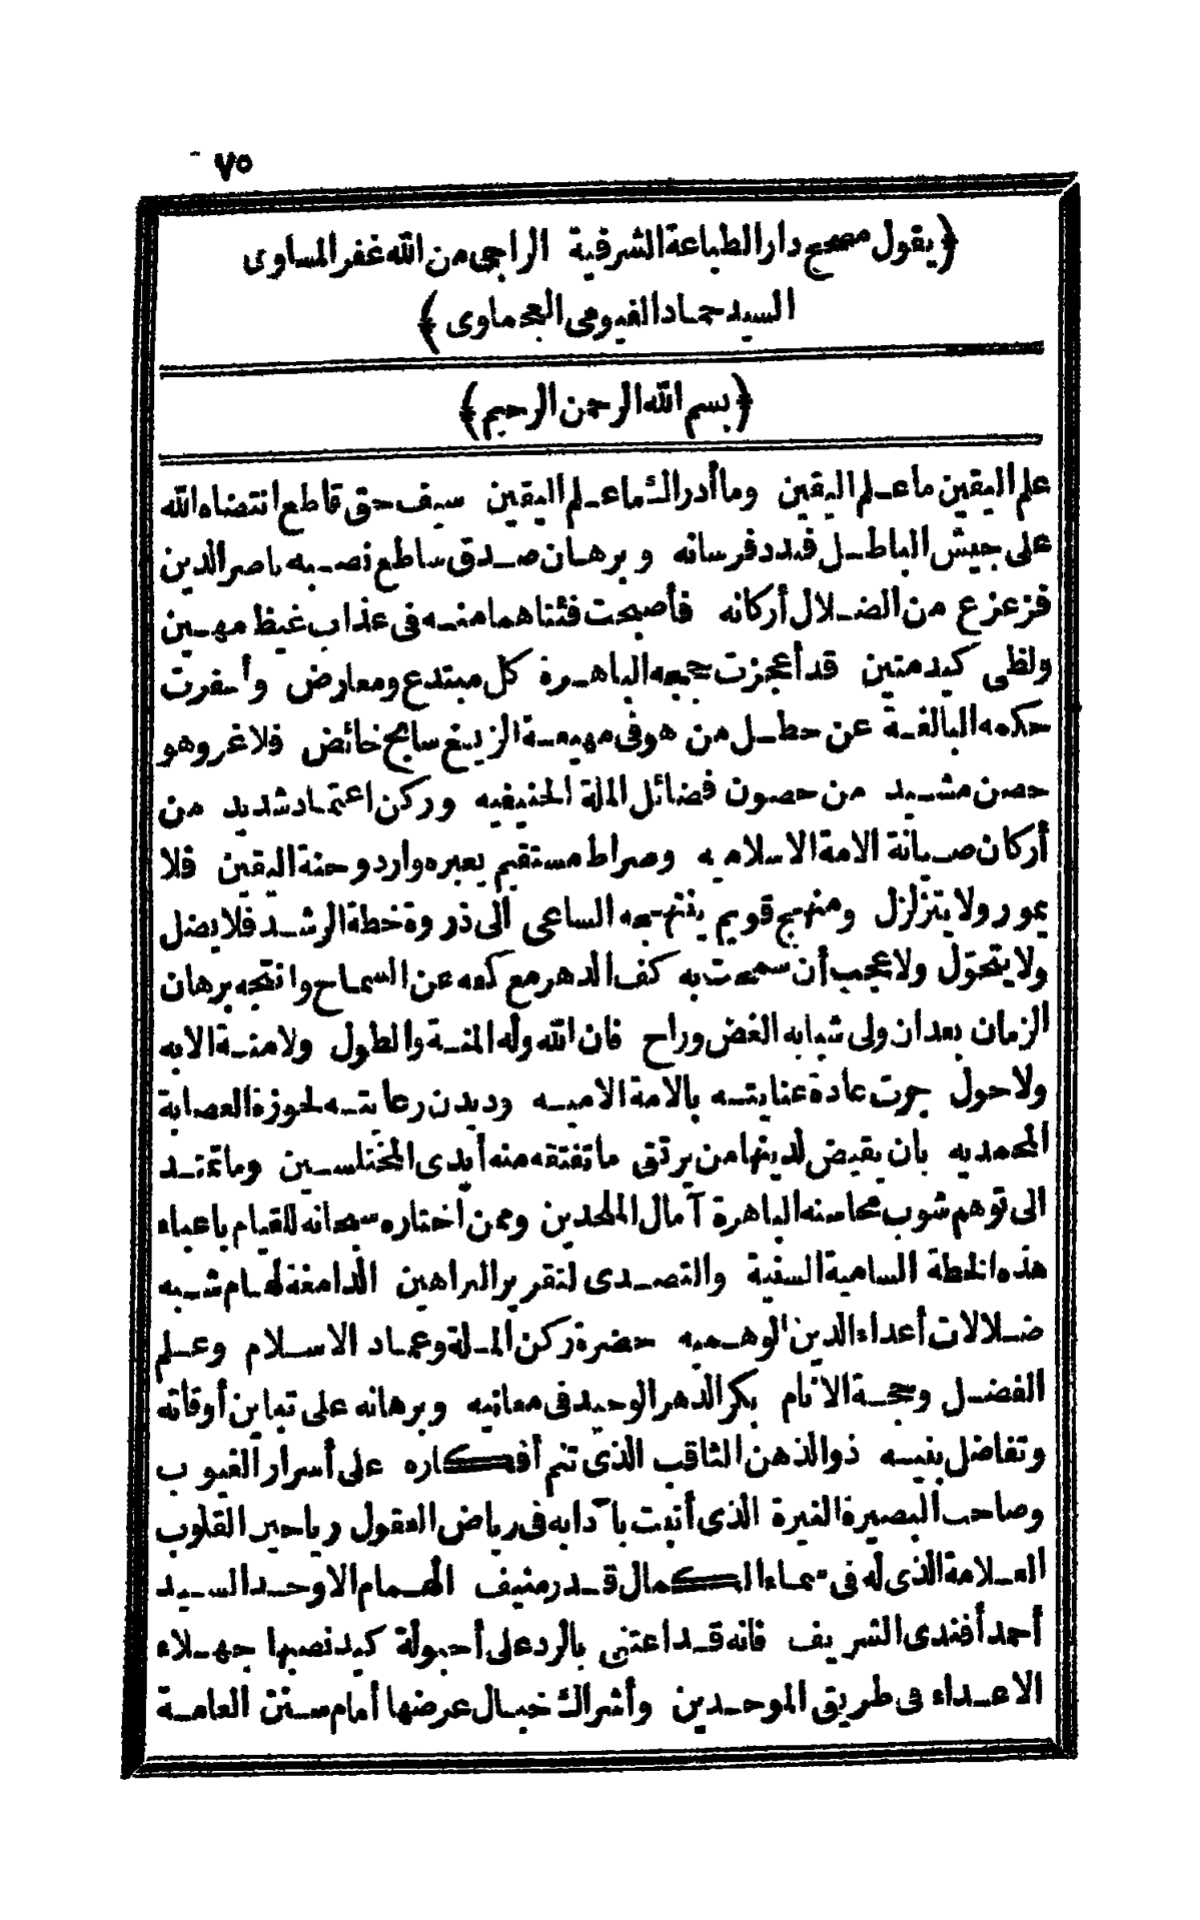 ٧٥
﴿يقول مصحح دار الطباعة الشرفية الراجى من الله غفر المساوى
السيد حماد الفيومى العجماوى﴾
﴿بسم الله الرحمن الرحيم﴾
علم اليقين ما علم اليقين وما أدراك ما علم اليقين سيف حق قاطع انتضاه الله
على جيش الباطل فبدد فرسانه وبرهان صدق ساطع نصبه ناصر الدين
فزعزع من الضلال أركانه فأصبحت فئتاهما منه فى عذاب غيظ مهين
ولظى كيد متين قد أعجزت حججه الباهرة كل مبتدع ومعارض وأسفرت
حكمه البالغة عن خطل من هو فى مهيعة الزيغ سابح خائض فلا غرو وهو
حصن مشيد من حصون فضائل الملة الحنيفيه وركن اعتماد شديد من
أركان صيانة الامة الاسلاميه وصراط مستقيم يعبره وارد وجنة اليقين فلا
يمور ولا يتزلزل ومنهج قويم ينتهجه الساعى الى ذروة خطة الرشد فلا يضل
ولا يتحوّل ولا عجب أن سمحت به كف الدهر مع كفه عن السماح وانتجه برهان
الزمان بعد ان ولى شبابه الغض وراح فان الله وله المنة والطول ولا منة الا به
ولا حول جرت عادة عنايته بالامة الاميه وديدن رعايته لحوزة العصابة
المحمديه بان يقيض لدينها من يرتق ما تفتقه منه أيدى المختلسين وما تمتد
الى توهم شوب محاسنه الباهرة آمال الملحدين وممن اختاره سبحانه للقيام باعباء
هذه الخطة السامية السنية والتصدى لتقرير البراهين الدامغة لهام شبه
ضلالات أعداء الدين الوهميه حضرة ركن الملة وعماد الاسلام وعلم
الفضل وحجة الانام بكر الدهر الوحيد فى معانيه وبرهانه على تباين أوقاته
وتفاضل بنيه ذو الذهن الثاقب الذى تنم أفكاره على أسرار الغيوب
وصاحب البصيرة النيرة الذى أنبت بآدابه فى رياض العقول رياحين القلوب
العلامة الذى له فى سماء الكمال قدر منيف الهمام الاوحد السيد
أحمد أفندى الشريف فانه قد اعتنى بالرد على أحبولة كيد نصبها جهلاء
الاعداء فى طريق الموحدين وأشراك خبال عرضها أمام سنن العامة